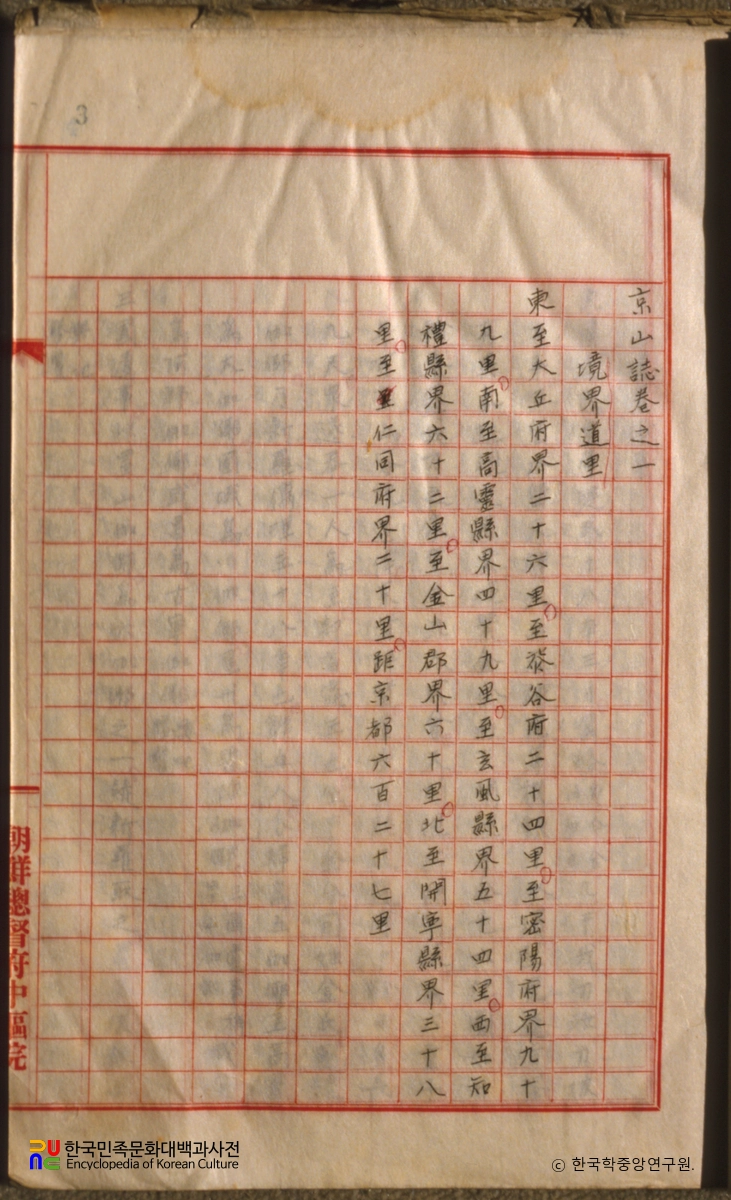 3
京山誌卷之一
境界道里
東至大丘府界二十六里至漆谷府二十四里至密陽府界九十
九里南至高靈縣界四十九里至玄風縣界五十四里西至知
禮縣界六十二里至金山郡界六十里北至開寧縣界三十八
里至里仁同府界二十里距京都六百二十七里
朝鮮總督府中樞院
한국민족문화대백과사전
Encyclopedia of Korean Culture
© 한국학중앙연구원.